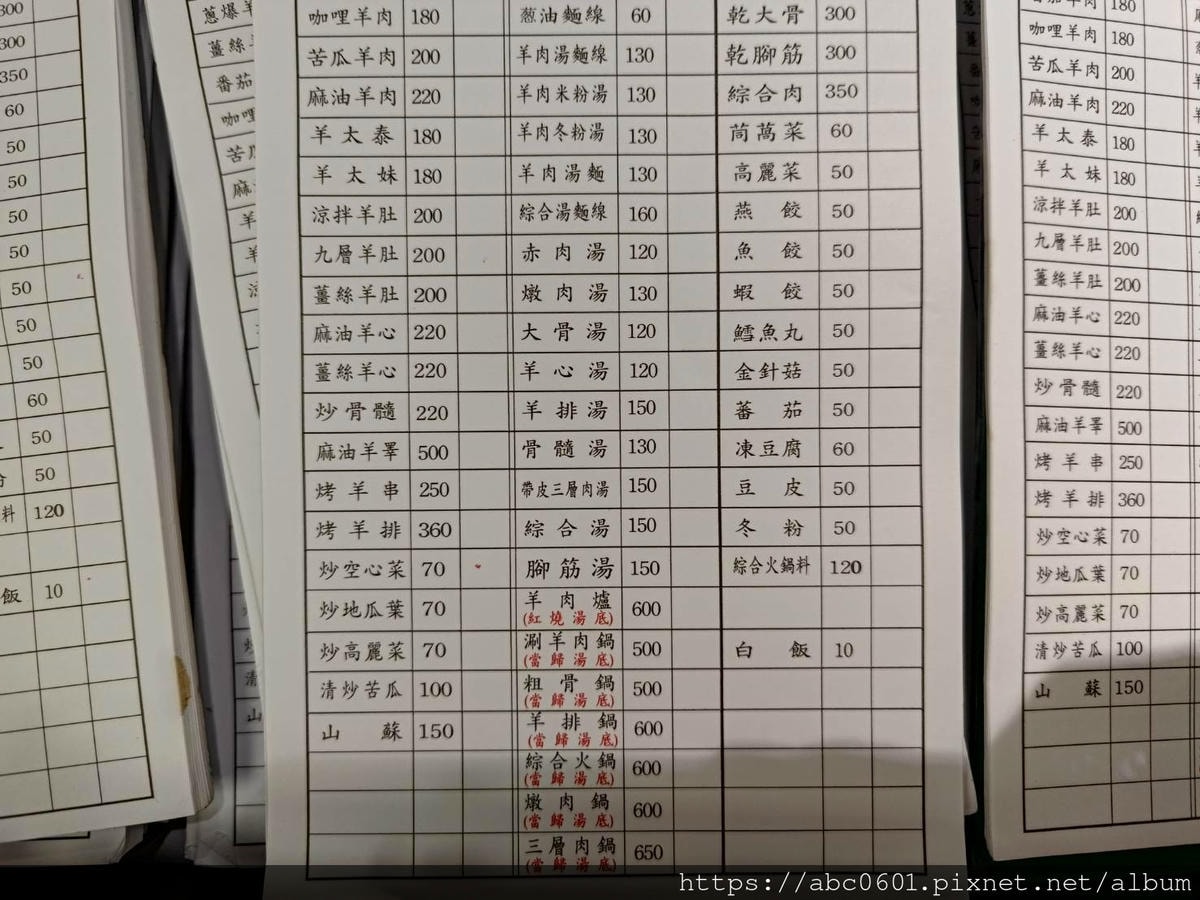 咖哩羊肉 180 葱油麵線 60 乾大骨 300
苦瓜羊肉 200 羊肉湯麵線 130 乾腳筋 300
麻油羊肉 220 羊肉米粉湯 130 綜合肉 350
羊太泰 180 羊肉冬粉湯 130 茼萵菜 60
羊太妹 180 羊肉湯麵 130 高麗菜 50
涼拌羊肚 200 綜合湯麵線 160 燕餃 50
九層羊肚 200 赤肉湯 120 魚餃 50
薑絲羊肚 200 燉肉湯 130 蝦餃 50
麻油羊心 220 大骨湯 120 鱈魚丸 50
薑絲羊心 220 羊心湯 120 金針菇 50
炒骨髓 220 羊排湯 150 蕃茄 50
麻油羊睪 500 骨髓湯 130 凍豆腐 60
烤羊串 250 帶皮三層肉湯 150 豆皮 50
烤羊排 360 綜合湯 150 冬粉 50
炒空心菜 70 腳筋湯 150 綜合火鍋料 120
炒地瓜葉 70 羊肉爐 600
(紅燒湯底)
炒高麗菜 70 涮羊肉鍋 500 白飯 10
(當歸湯底)
清炒苦瓜 100 粗骨鍋 500
(當歸湯底)
山蘇 150 羊排鍋 600
(當歸湯底)
綜合火鍋 600
(當歸湯底)
燉肉鍋 600
(當歸湯底)
三層肉鍋 650
(當歸湯底)
300
350
60
50
50
50
50
50
50
50
60
50
50
料 120
飯 10
蔥爆羊
薑絲
番茄
咖哩
苦
180
咖哩羊肉 180
苦瓜羊肉 200
麻油羊肉 220
羊太泰 180
羊太妹 180
涼拌羊肚 200
九層羊肚 200
薑絲羊肚 200
麻油羊心 220
薑絲羊心 220
炒骨髓 220
麻油羊睪 500
烤羊串 250
烤羊排 360
炒空心菜 70
炒地瓜葉 70
炒高麗菜 70
清炒苦瓜 100
山蘇 150
https://abc0601.pixnet.net/album